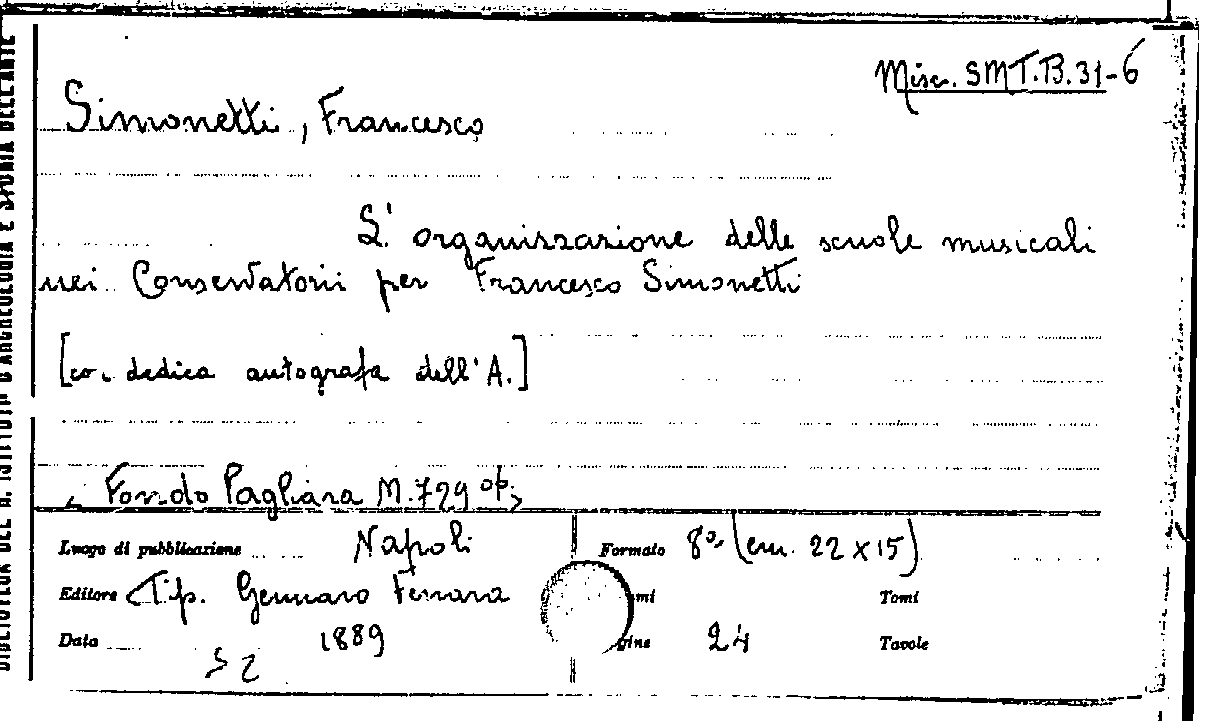 Misc. SMT.B.31-6
Simonetti, Francesco
L'organizzazione delle scuole musicali
nei Conservatorii per Francesco Simonetti
[con dedica autografa dell'A.]
Fondo Pagliara M.729 op.
Luogo di pubblicazione Napoli Formato 8° (cm. 22 x 15)
Editore Tip. Gennaro Ferrara Tomi
Data 1889 24 Tavole
BIBLIOTECA DEL R. ISTITUTO D'ARCHEOLOGIA E STORIA DELL'ARTE